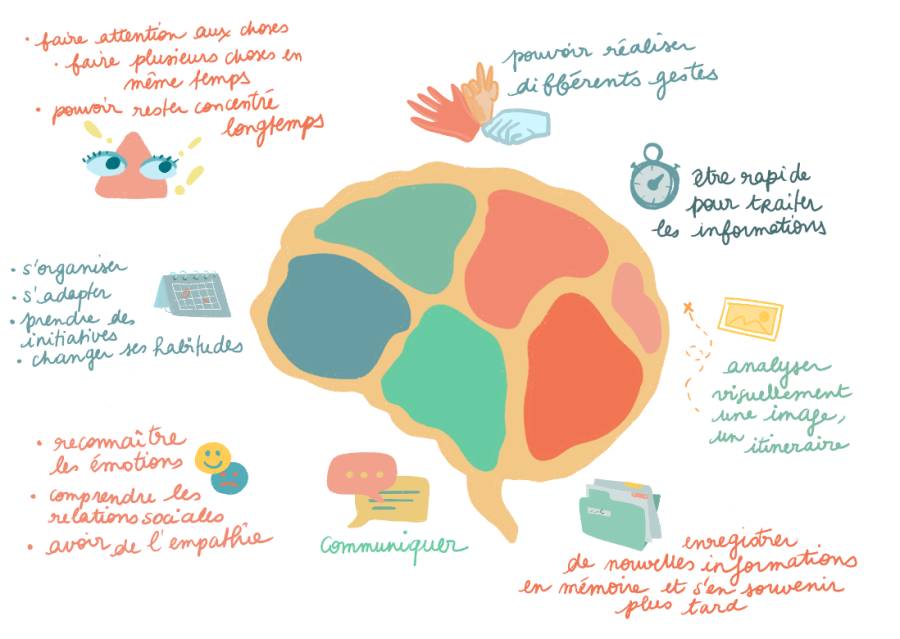 • faire attention aux choses
• faire plusieurs choses en
même temps
• pouvoir rester concentré
longtemps
pouvoir réaliser
différents gestes
être rapide
pour traiter
les informations
• s'organiser
• s'adapter
• prendre des
initiatives
• changer ses habitudes
analyser
visuellement
une image,
un itineraire
• reconnaître
les émotions
• comprendre les
relations sociales
• avoir de l'empathie
communiquer
enregistrer
de nouvelles informations
en mémoire et s'en souvenir
plus tard